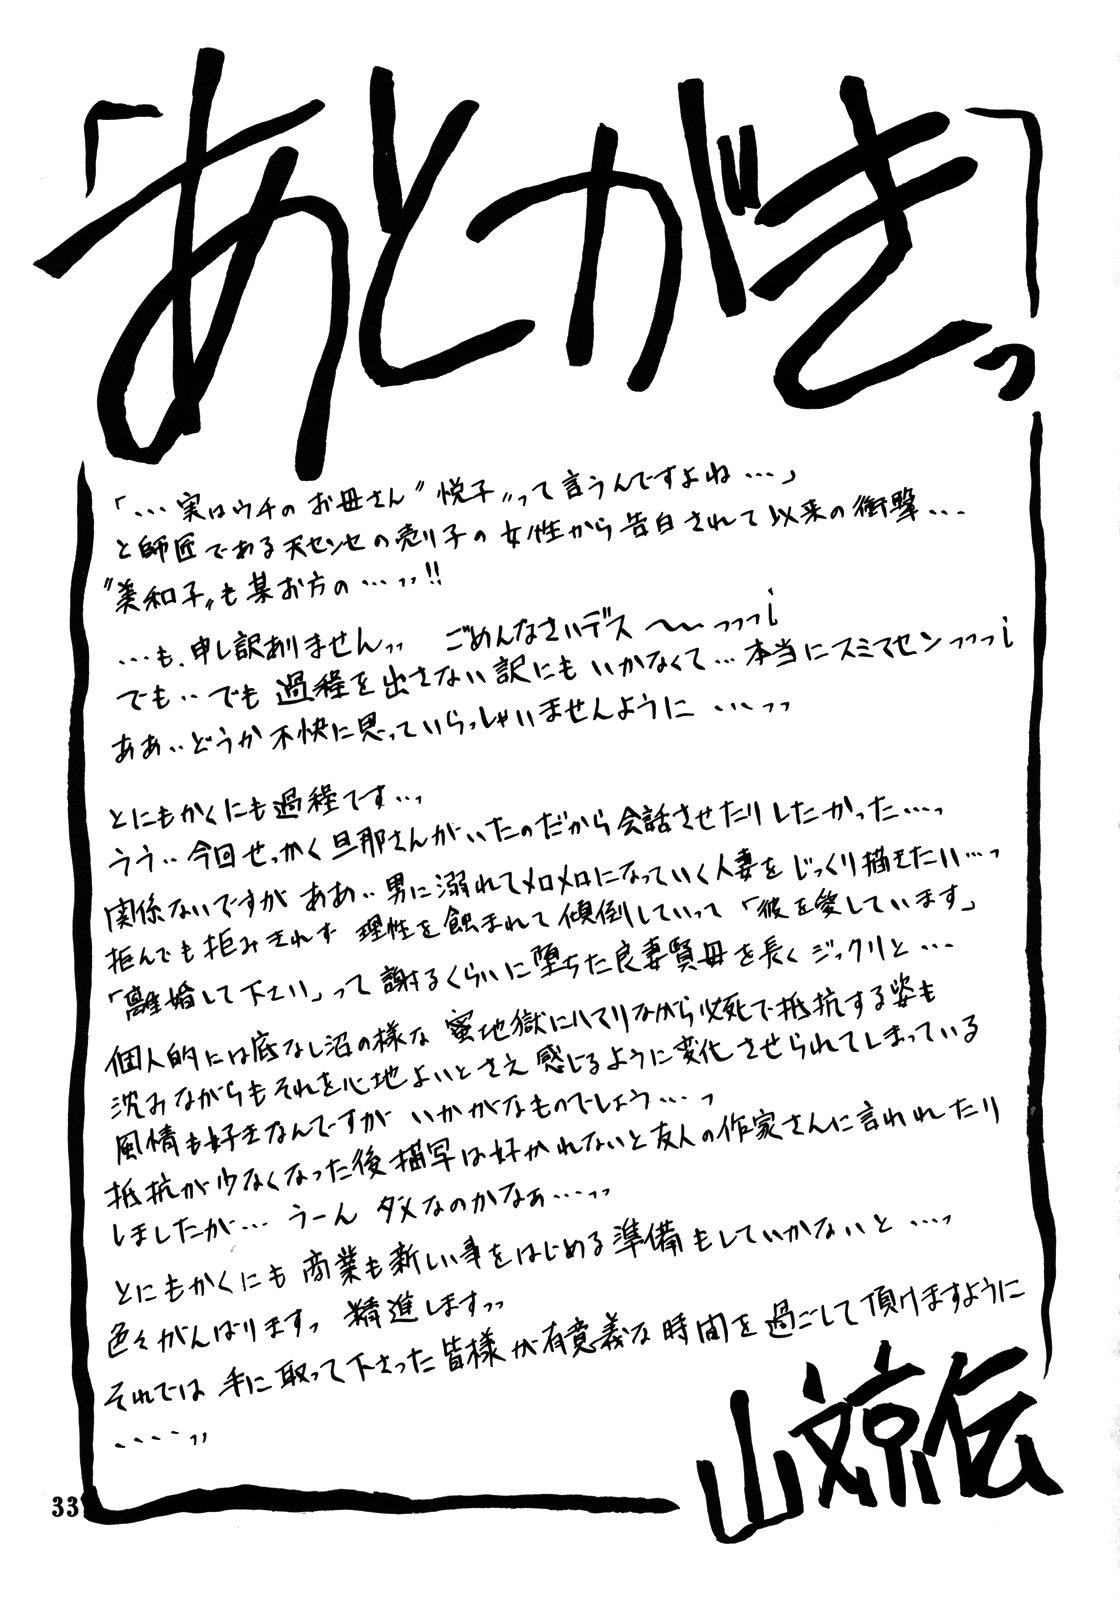 「あとがきっ」
「…実はウチのお母さん〝悦子〟って言うんですよね…」
と師匠である天センセの売り子の女性から告白されて以来の衝撃…
〝美和子〟も某お方の…ッ!!
…も、申し訳ありませんッ ごめんなさいデス〜〜ッッッ¡
でも‥でも過程を出さない訳にもいかなくて…本当にスミマセンッッッ¡
ああ‥どうか不快に思っていらっしゃいませんように …ッ
とにもかくにも過程です…っ
うう‥今回せっかく旦那さんがいたのだから会話させたりしたかった…っ
関係ないですが ああ‥男に溺れてメロメロになっていく人妻をじっくり描きたい…っ
拒んでも拒みきれず 理性を蝕まれて傾倒していって「彼を愛しています」
「離婚して下さい」って謝るくらいに堕ちた良妻賢母を長くジックリと…
個人的には底なし沼の様な 蜜地獄にハマりながら必死で抵抗する姿も
沈みながらもそれを心地よいとさえ感じるように変化させられてしまっている
風情も好きなんですが いかがなものでしょう…っ
抵抗が少なくなった後描写は好かれないと友人の作家さんに言われたり
しましたが… うーん ダメなのかなぁ…ッ
とにもかくにも 商業も新しい事をはじめる準備もしていかないと…っ
色々がんばりますっ 精進しますッ
それでは 手に取って下さった皆様が有意義な時間を過ごして頂けますように
‥‥ッ
山文京伝
33